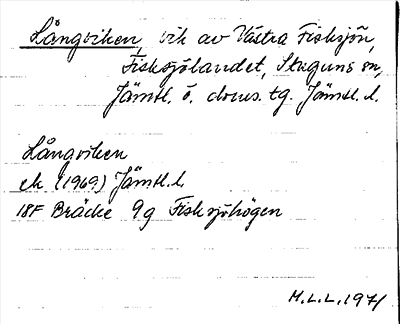 Långviken, vik av Västra Fisksjön,
Fisksjölandet, Staguns sn,
Jämtl. ö. doms. tg. Jämtl. l.
Långviken
ek (1969) Jämtl. l.
18F Bräcke 9g Fisksjöhögen
M.L.L. 1971